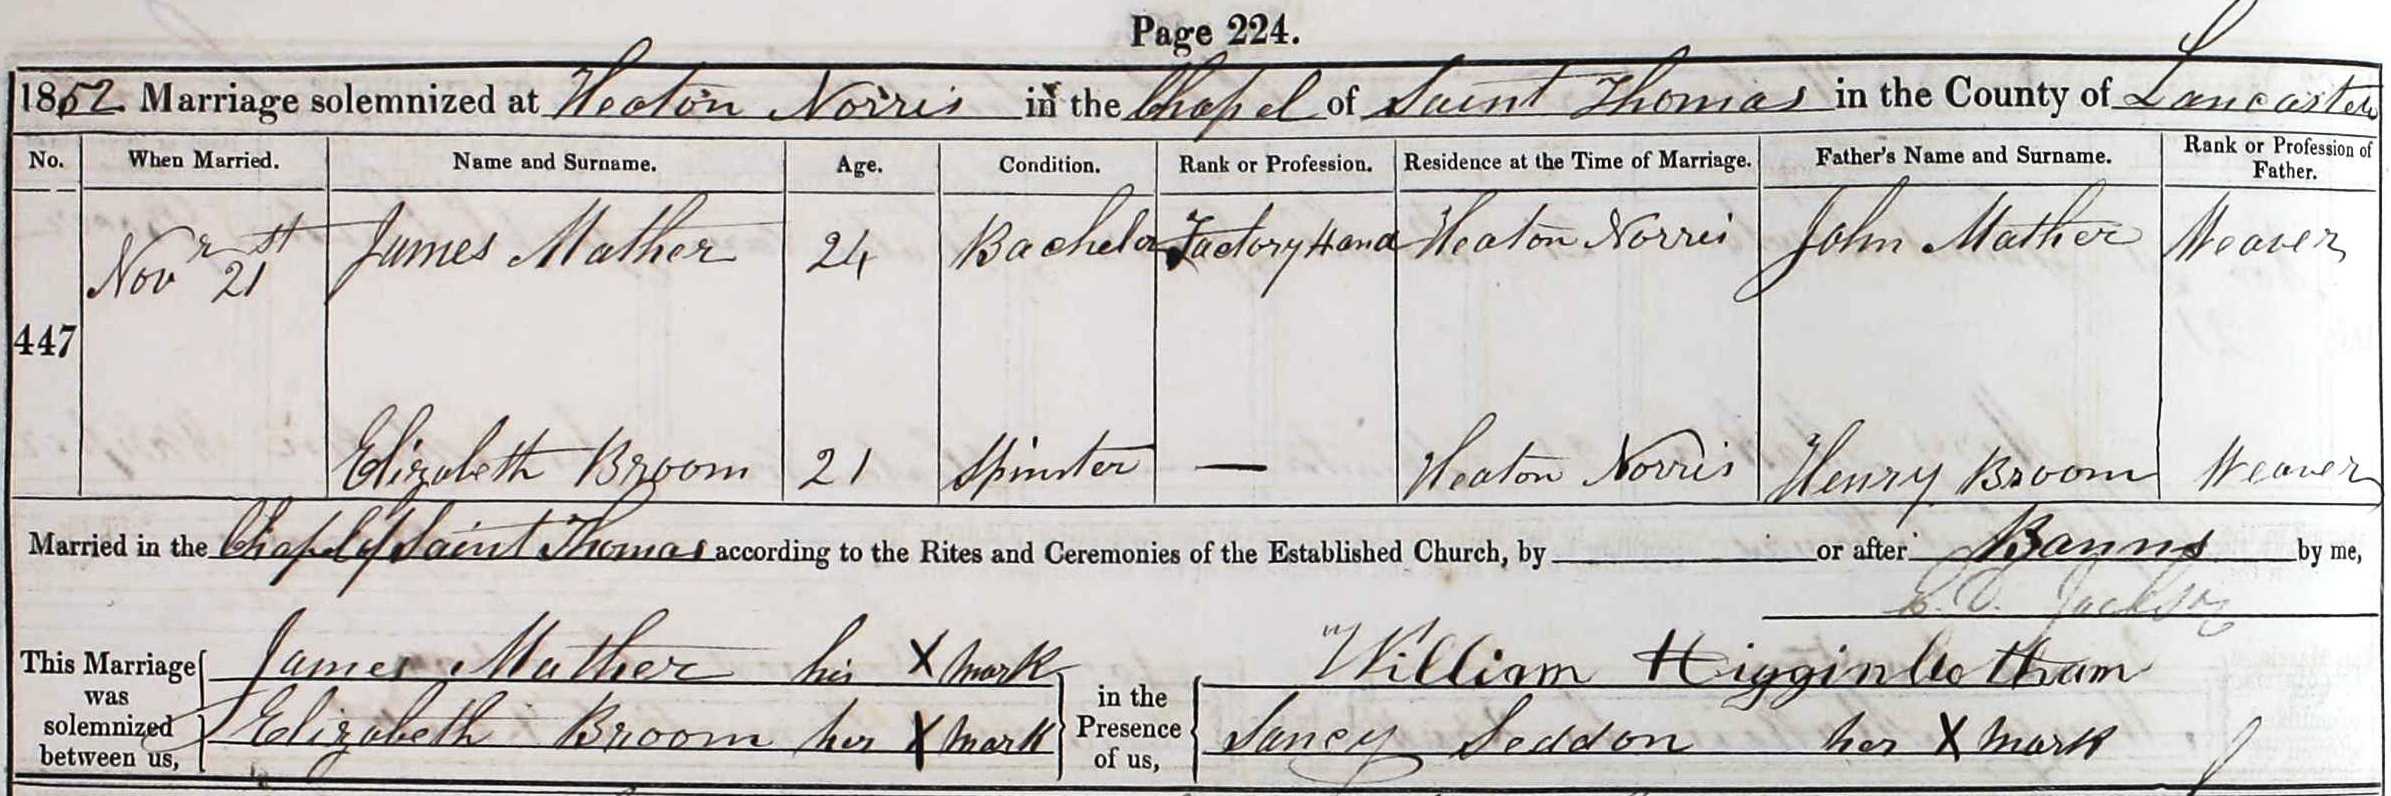 Page 224.
1852 Marriage solemnized at Heaton Norris in the Chapel of Saint Thomas in the County of Lancaster
No. When Married. Name and Surname. Age. Condition. Rank or Profession. Residence at the Time of Marriage. Father's Name and Surname. Rank or Profession of Father.
447 Novr 21st James Mather 24 Bachelor Factory Hand Heaton Norris John Mather Weaver
Elizabeth Broom 21 Spinster — Heaton Norris Henry Broom Weaver
Married in the Chapel of Saint Thomas according to the Rites and Ceremonies of the Established Church, by or after Banns by me,
Jackson
This Marriage was solemnized between us, James Mather his X mark
Elizabeth Broom her X mark
in the Presence of us, William Higginbotham
Seddon her X mark